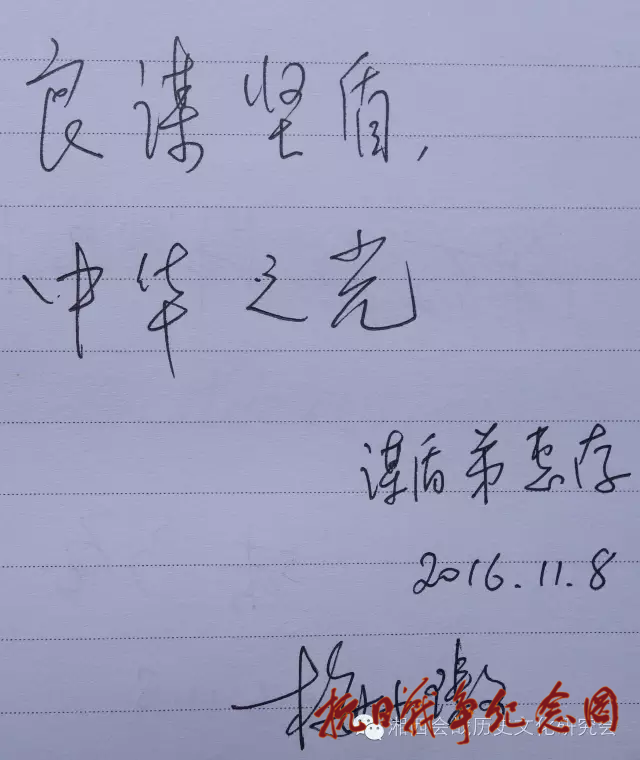 良谋坚盾,
中华之光
谋盾弟惠存
2016.11.8
抗日战争纪念网
湘西会战历史文化研究会